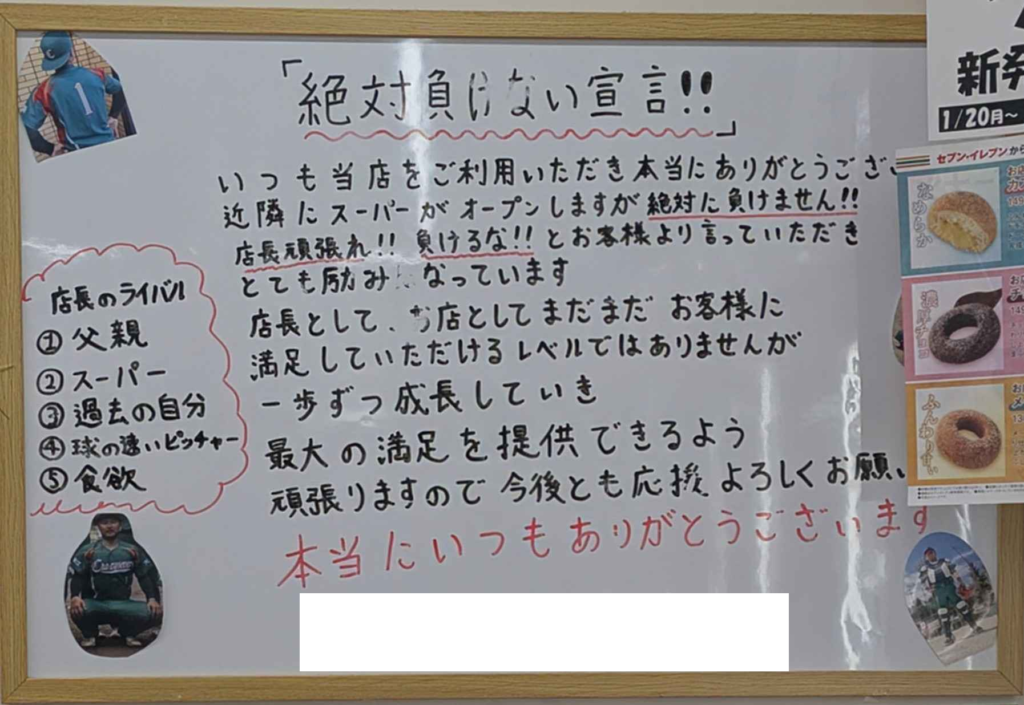 「絶対負けない宣言!!」
いつも当店をご利用いただき本当にありがとうござ
近隣にスーパーがオープンしますが絶対に負けません!!
店長頑張れ!! 負けるな!! とお客様より言っていただき
とても励み なっています
店長として、お店としてまだまだ お客様に
満足していただけるレベルではありませんが
一歩ずつ成長していき
最大の満足を提供できるよう
頑張りますので 今後とも応援 よろしくお願い
本当にいつもありがとうございます
店長のライバル
①父親
②スーパー
③過去の自分
④球の速いピッチャー
⑤食欲
1
新発
1/20月～
セブン-イレブンから
なめらか
濃厚チョコ
ふんわり